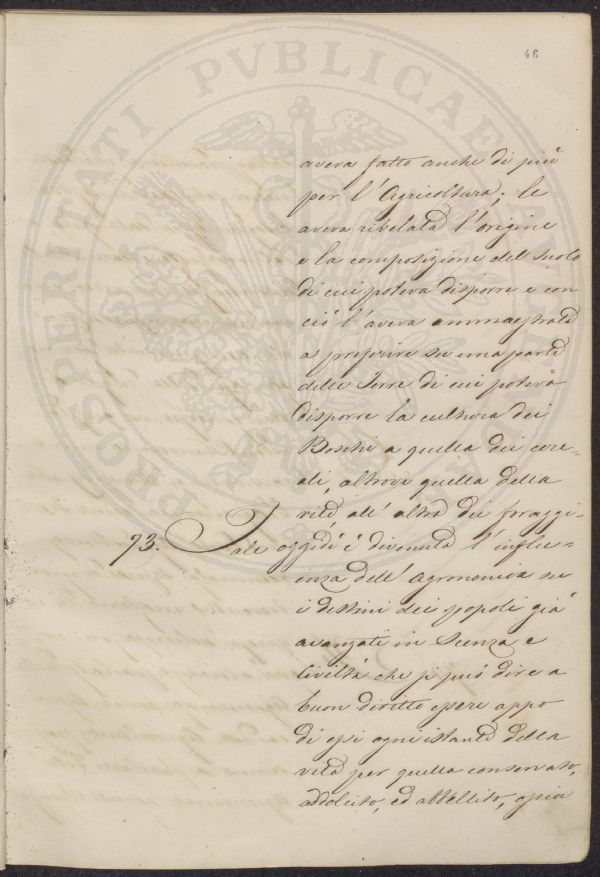 46
PROSPERITATI PVBLICAE
aveva fatto anche di più
per l'Agricoltura; le
aveva rivelata l'origine
e la composizione del suolo
di cui poteva disporre e con
ciò l'aveva ammaestrata
a preferire su una parte
delle Terre di cui poteva
disporre la cultura dei
Boschi a quella dei cere-
ali, altrove quella della
vite all'altra dei foraggi.
73. Tale oggidì è divenuta l'influ-
enza dell'Agronomia su
i destini dei popoli già
avanzati in Scienza e
Civiltà che si può dire a
buon diritto essere appo
di essi ogni istante della
vita per quella conservato,
addolcito, ed abbellito, ossia